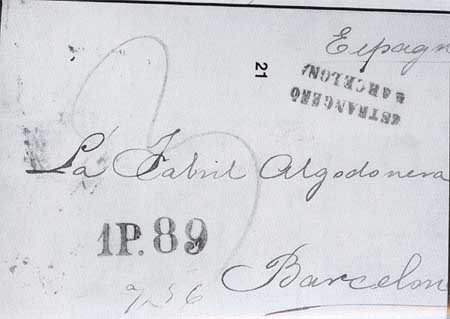 Espagn
21
ESTRANGERO
BARCELONA
La Fabril Algodonera
1P.89
Barcelon